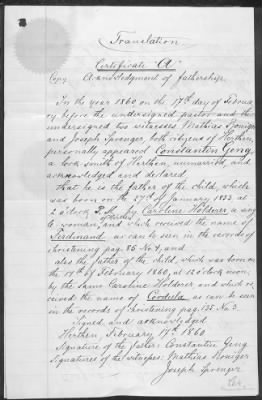 Translation
Certificate "A"
Copy Acknowledgment of fathership.
In the year 1860 on the 17th day of Februa-
ry before the undersigned pastor and the
undersigned two witnesses Mathias
and Joseph Sponger both citizens of Herthen
personally appeared Constantin Geng
a lock smith of Herthen, unmarried, and
acknowledged and declared
that he is the father of the child, which
was born on the 27th of January 1853 at
2 o'clock P.M. by Caroline Holderer a
woman, and which received the name of
Ferdinand as can be seen in the records of
christening pag. 85 No. 4, and
also the father of the child, which was born on
the 14th of February 1860, at 12 o'clock noon,
by the same Caroline Holderer and which re-
ceived the name of Cordula as can be seen
in the records of christening pag. 135 No 3
Signed and acknowledged
Herthen February 17th 1860
Signature of the father: Constantin Geng
Signatures of the witnesses: Mathias
Joseph Sponger